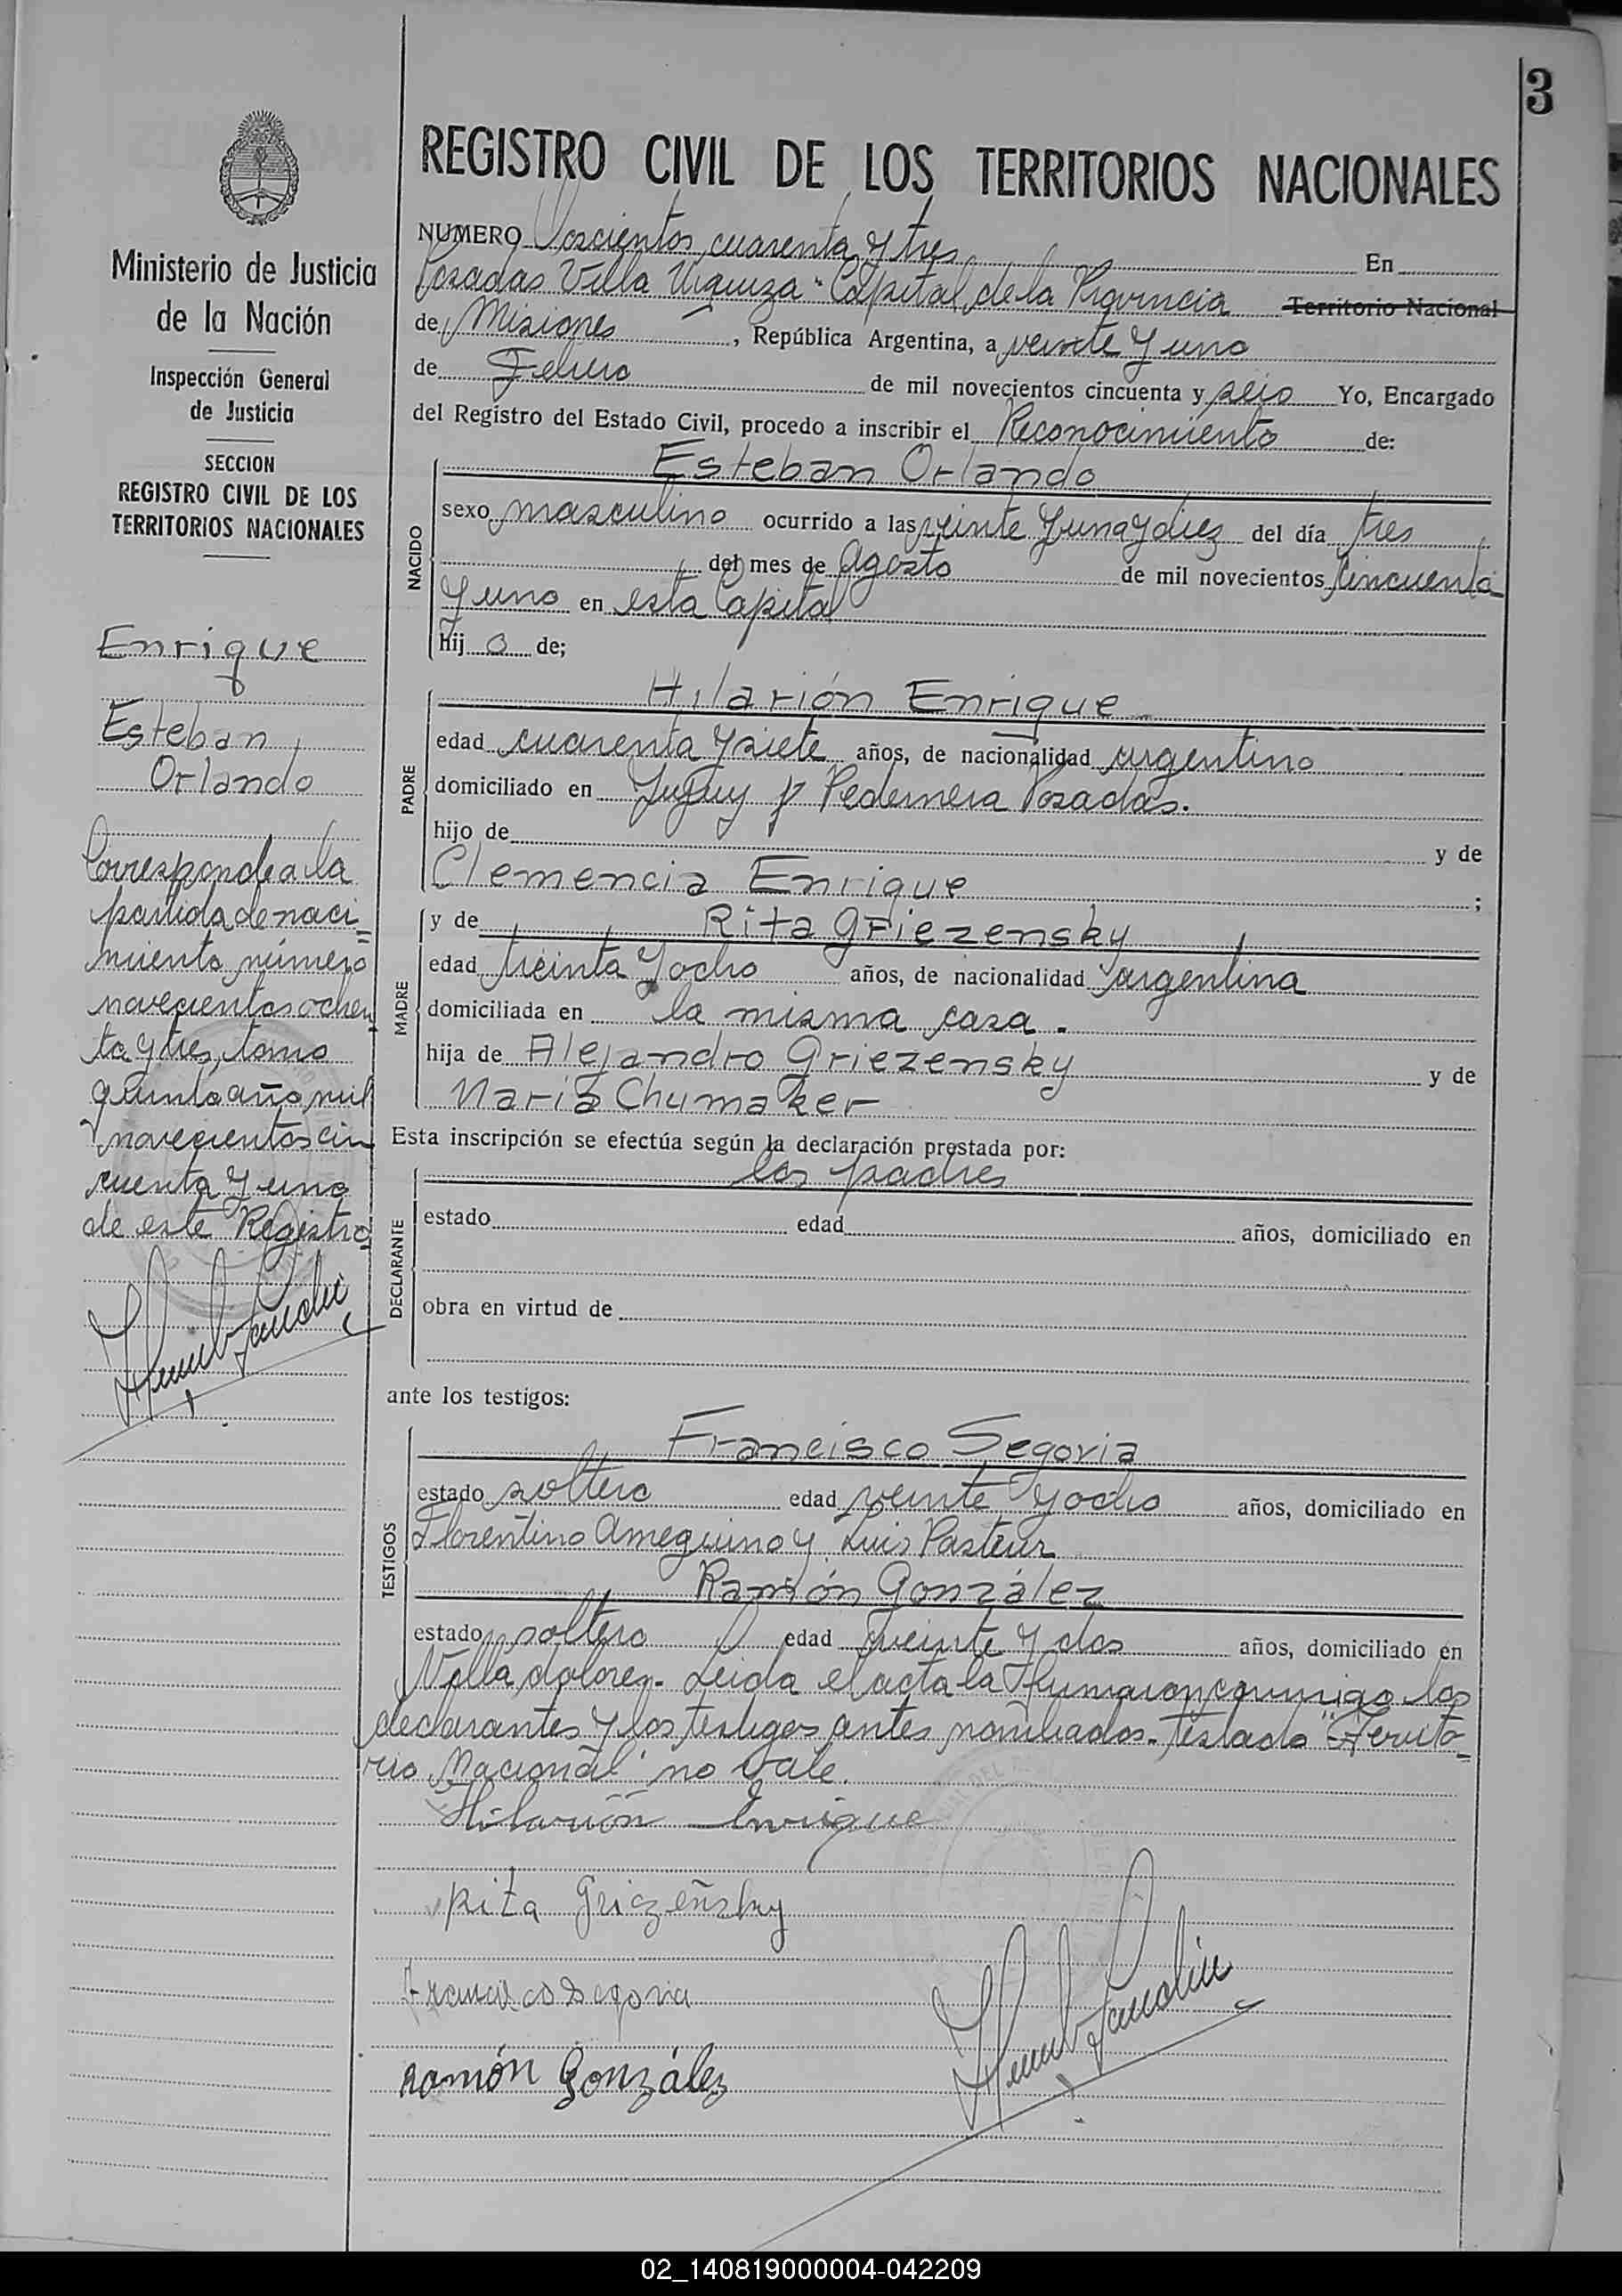 3
REGISTRO CIVIL DE LOS TERRITORIOS NACIONALES
Ministerio de Justicia
de la Nación
Inspección General
de Justicia
SECCION
REGISTRO CIVIL DE LOS
TERRITORIOS NACIONALES
Enrique
Esteban
Orlando
Corresponde a la
partida de naci=
miento número
novecientos ochen
ta y tres, tomo
quinto año mil
novecientos cin
cuenta y uno
de este Registro
NUMERO Doscientos cuarenta y tres En
Posadas Villa Urquiza - Capital de la Provincia Territorio Nacional
de Misiones, República Argentina, a veinte y uno
de Febrero de mil novecientos cincuenta y seis Yo, Encargado
del Registro del Estado Civil, procedo a inscribir el Reconocimiento de:
NACIDO
Esteban Orlando
sexo masculino ocurrido a las veinte y una y diez del día tres
del mes de Agosto de mil novecientos cincuenta
y uno en esta Capital
hij o de;
PADRE
Hilarión Enrique
edad cuarenta y siete años, de nacionalidad argentino
domiciliado en Jujuy y Pedernera Posadas.
hijo de y de
Clemencia Enrique ;
MADRE
y de Rita Griezensky
edad treinta y ocho años, de nacionalidad argentina
domiciliada en la misma casa.
hija de Alejandro Griezensky y de
María Chumaker
Esta inscripción se efectúa según la declaración prestada por:
DECLARANTE
los padres
estado edad años, domiciliado en
obra en virtud de
ante los testigos:
TESTIGOS
Francisco Segovia
estado soltero edad veinte y ocho años, domiciliado en
Florentino Ameguino y Luis Pasteur
Ramón González
estado soltero edad veinte y dos años, domiciliado en
Villa dolores. Leida el acta la firmaron conmigo los
declarantes y los testigos antes nombrados. Testado "Territo=
rio Nacional" no vale.
Hilarión Enrique
Rita Griezeñsky
Francisco Segovia
Ramón González
02_140819000004-042209